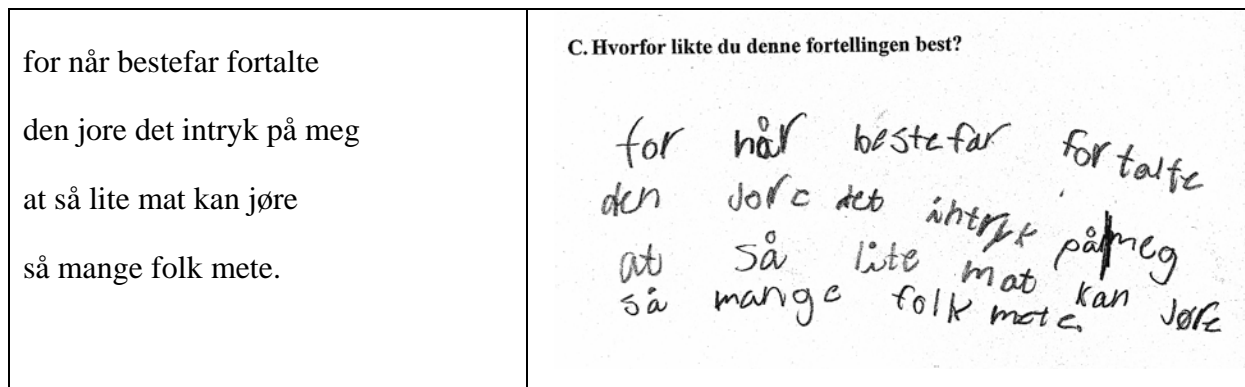 for når bestefar fortalte
den jore det intryk på meg
at så lite mat kan jøre
så mange folk mete.
C. Hvorfor likte du denne fortellingen best?
for når bestefar fortalte
den jore det intryk på meg
at så lite mat kan jøre
så mange folk mete.